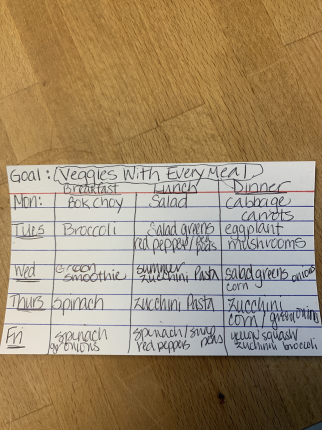 Goal: Veggies With Every Meal
Breakfast Lunch Dinner
Mon: Bok choy Salad cabbage
carrots
Tues Broccoli Salad greens eggplant
red peppers/peas mushrooms
Wed Green summer salad greens onions
smoothie zucchini pasta corn
Thurs spinach zucchini pasta zucchini
corn/green onions
Fri spinach spinach/snap yellow squash/
gr onions red peppers peas zucchini broccoli